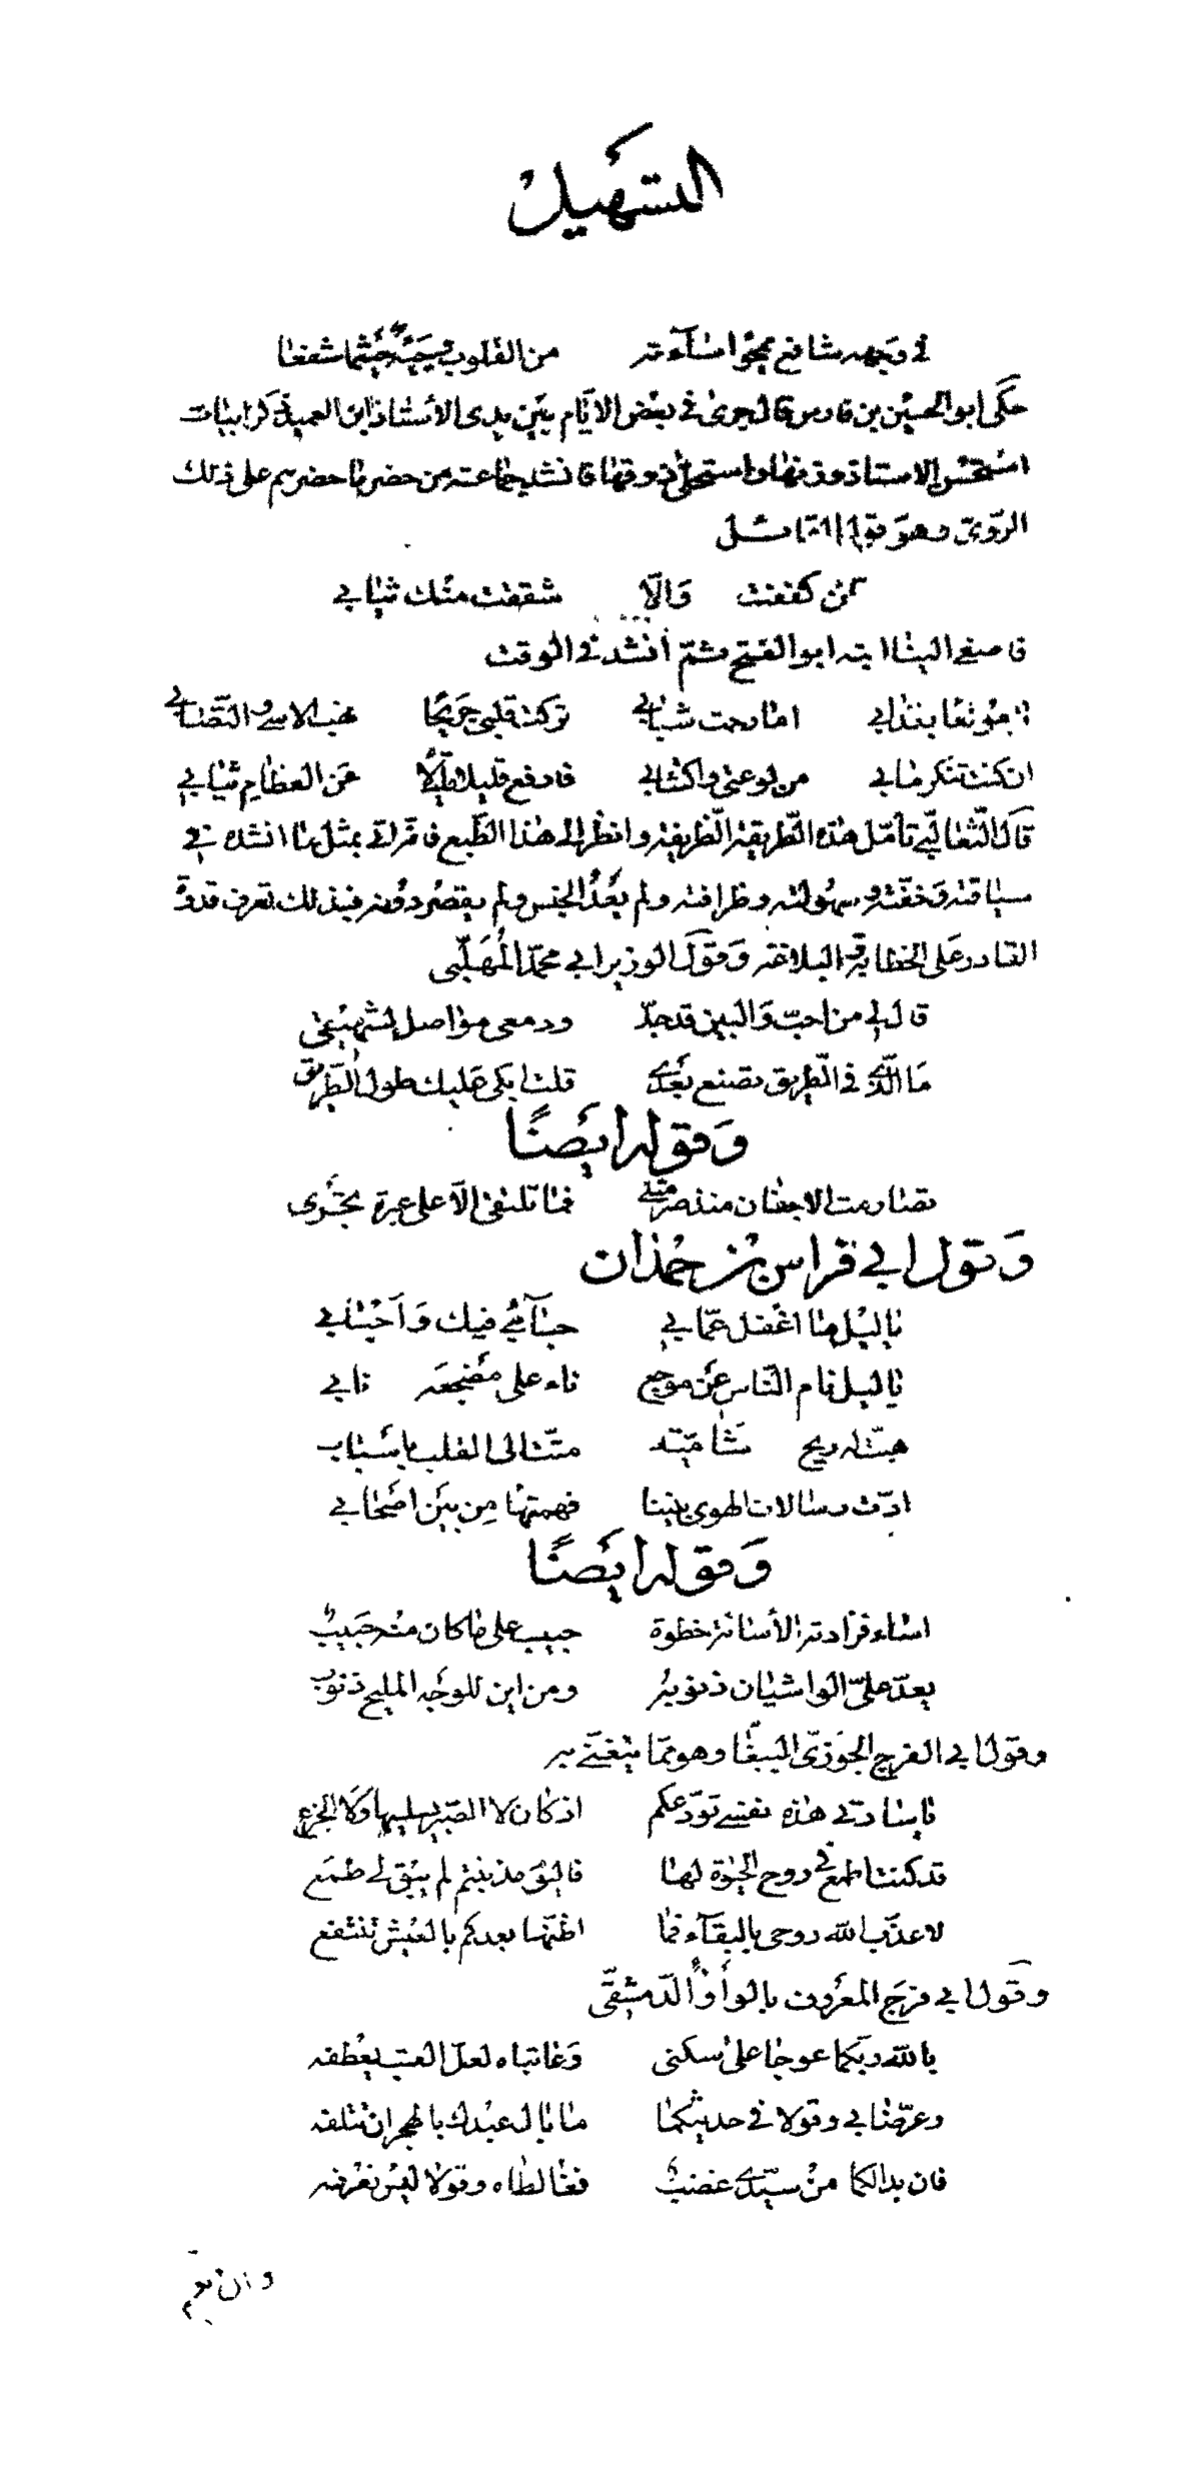 التسهيل
في وجهه شافع يمحوا اساءته من القلوب وجيه حيثما شفعا
حكى ابو الحسين بن فارس قال جرى في بعض الايام بين يدى الأستاذ ابن العميد ذكر ابيات
استحسن الاستاذ وزنها واستحلى ذوقها فانشد جماعة من حضر ما حضرهم على ذلك
الروى وهو قول القائل
لئن كففت والا شققت منك ثيابي
فاصغى الينا ابنه ابو الفتح ثم أنشد في الوقت
يا مولعا بعذابي اما رحمت شبابي تركت قلبى جريحًا نهب الاسى والتصابي
ان كنت تنكر ما بي من لوعتى واكتئابي فارفع قليلا قليلًا عن العظام ثيابي
قال الثعالبي تأمل هذه الطريقة الظريفة وانظر الى هذا الطبع فاقراته بمثل ما انشده في
سياقته وخفته وسهولته وظرافته ولم يعد الجنس ولم يقصر دونه فبذلك تعرف قدرة
القادر على الخطابة والبلاغة وقول الوزير ابي محمد المهلبى
قال لي من احب والبين قد جد ودمعى مواصل لشهيقى
ما الذى في الطريق تصنع بعدى قلت ابكى عليك طول الطريق
وقوله ايضًا
تصارمت الاجفان منذ صرمتنى فما تلتقى الا على عبرة تجرى
وقول ابي فراس بن حمدان
يا ليل ما اغفل عما بي حبائبي فيك واحبابي
يا ليل نام الناس عن موجع ناء على مضجعه نابي
هبت له ريح شامية متت الى القلب باسباب
ادت رسالات الهوى بيننا فهمتها من بين اصحابي
وقوله ايضًا
اساء فزادته الأساءة خطوة حبيب على ما كان منه حبيب
يعد على الواشيان ذنوبه ومن اين للوجه المليح ذنوب
وقول ابي الفرج الجوزى الببغا وهو مما يتغنى به
يا سادتى هذه نفسى تودعكم اذ كان لا الصبر يسليها ولا الجزع
قد كنت اطمع في روح الحيوة لها فاليوم مذ بنتم لم يبق لى طمع
لا عذب الله روحى بالبقاء فما اظنها بعدكم بالعيش تنتفع
وقول ابي فرج المعروف بالوأواء الدمشقى
بالله ربكما عوجا على سكنى وعاتباه لعل العتب يعطفه
وعرضا بي وقولا في حديثكما ما بال عبدك بالهجران تتلفه
فان بدا لكما من سيدى غضب فغالطاه وقولا ليس نعرفه